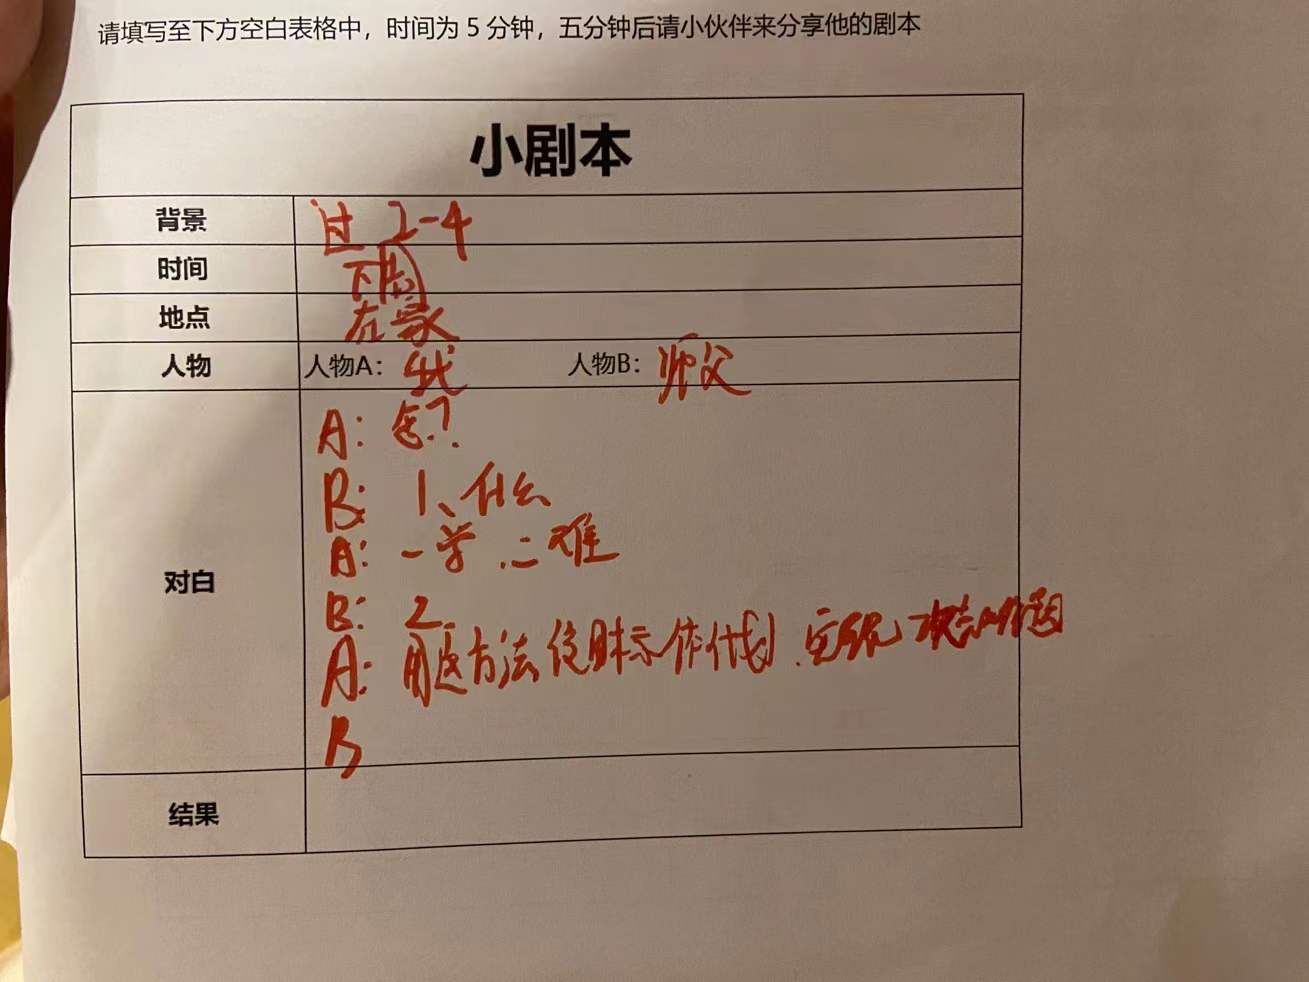 请填写至下方空白表格中，时间为 5 分钟，五分钟后请小伙伴来分享他的剧本
小剧本
背景 过 2-4
时间 下周
地点 在家
人物 人物A： 我 人物B： 师父
A: 怎?
B: 1、什么
A: 一学 .二难
对白
B: 2
A: 用 方法 作计划 题
B
结果